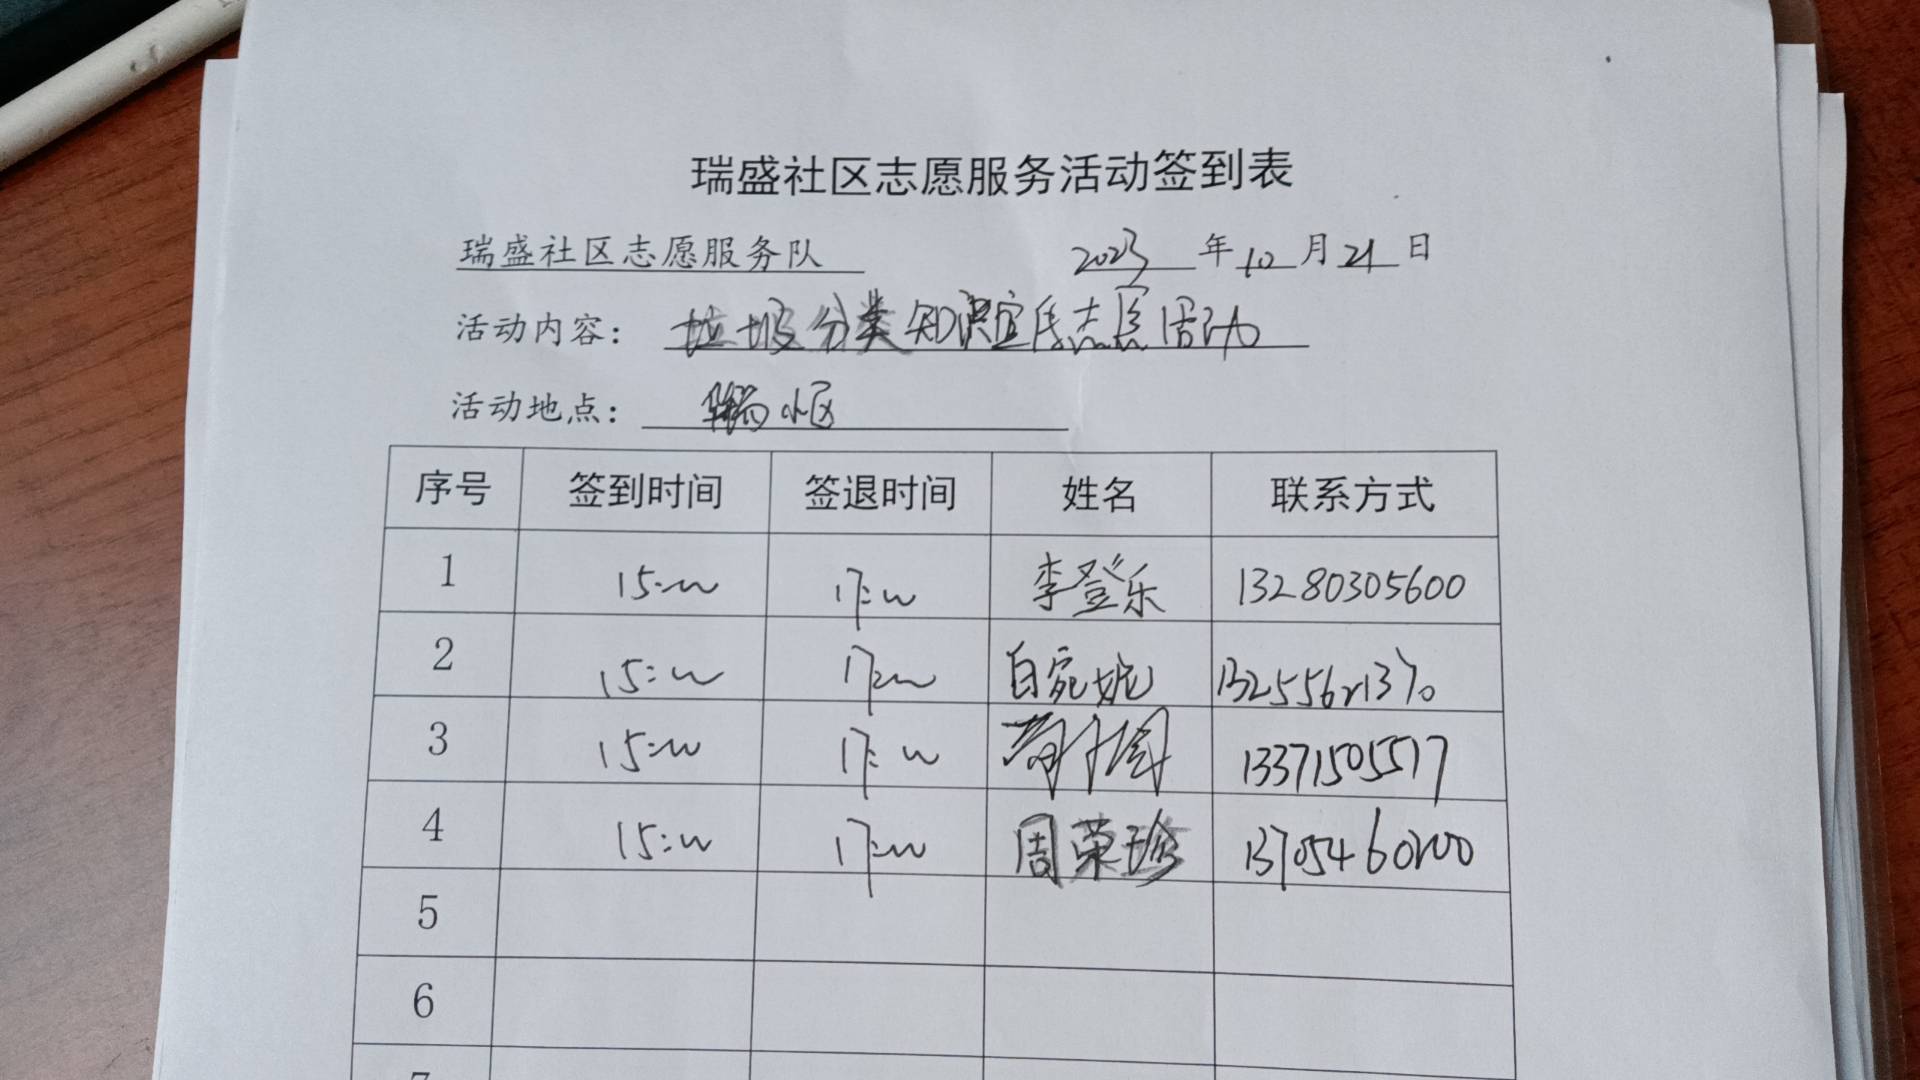 瑞盛社区志愿服务活动签到表
瑞盛社区志愿服务队 2023 年 10 月 21 日
活动内容： 垃圾分类知识宣传志愿活动
活动地点： 小区
序号 签到时间 签退时间 姓名 联系方式
1 15:00 17:00 李登乐 13280305600
2 15:00 17:00 白宛妮 13255621370
3 15:00 17:00 13371505517
4 15:00 17:00 周荣珍 13705460200
5
6
7